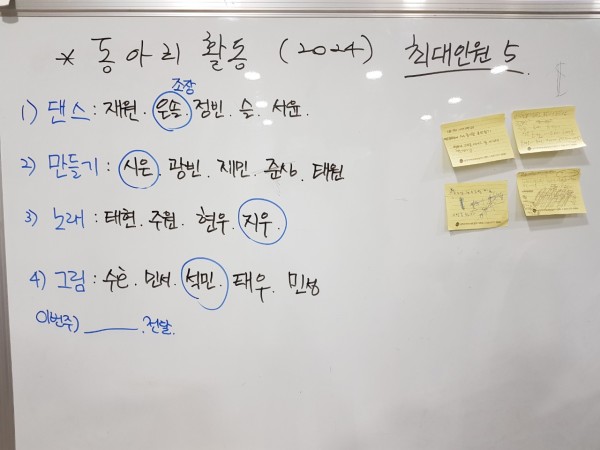 * 동아리 활동 (2024) 최대인원 5
조장
1) 댄스 : 재원. 은솔. 정빈. 슬. 서윤.
2) 만들기 : 시은. 광빈. 제민. 준상. 태원
3) 노래 : 태현. 주원. 현우. 지우.
4) 그림 : 민서. 석민. 태우. 민성
이번주) ______. 전달.